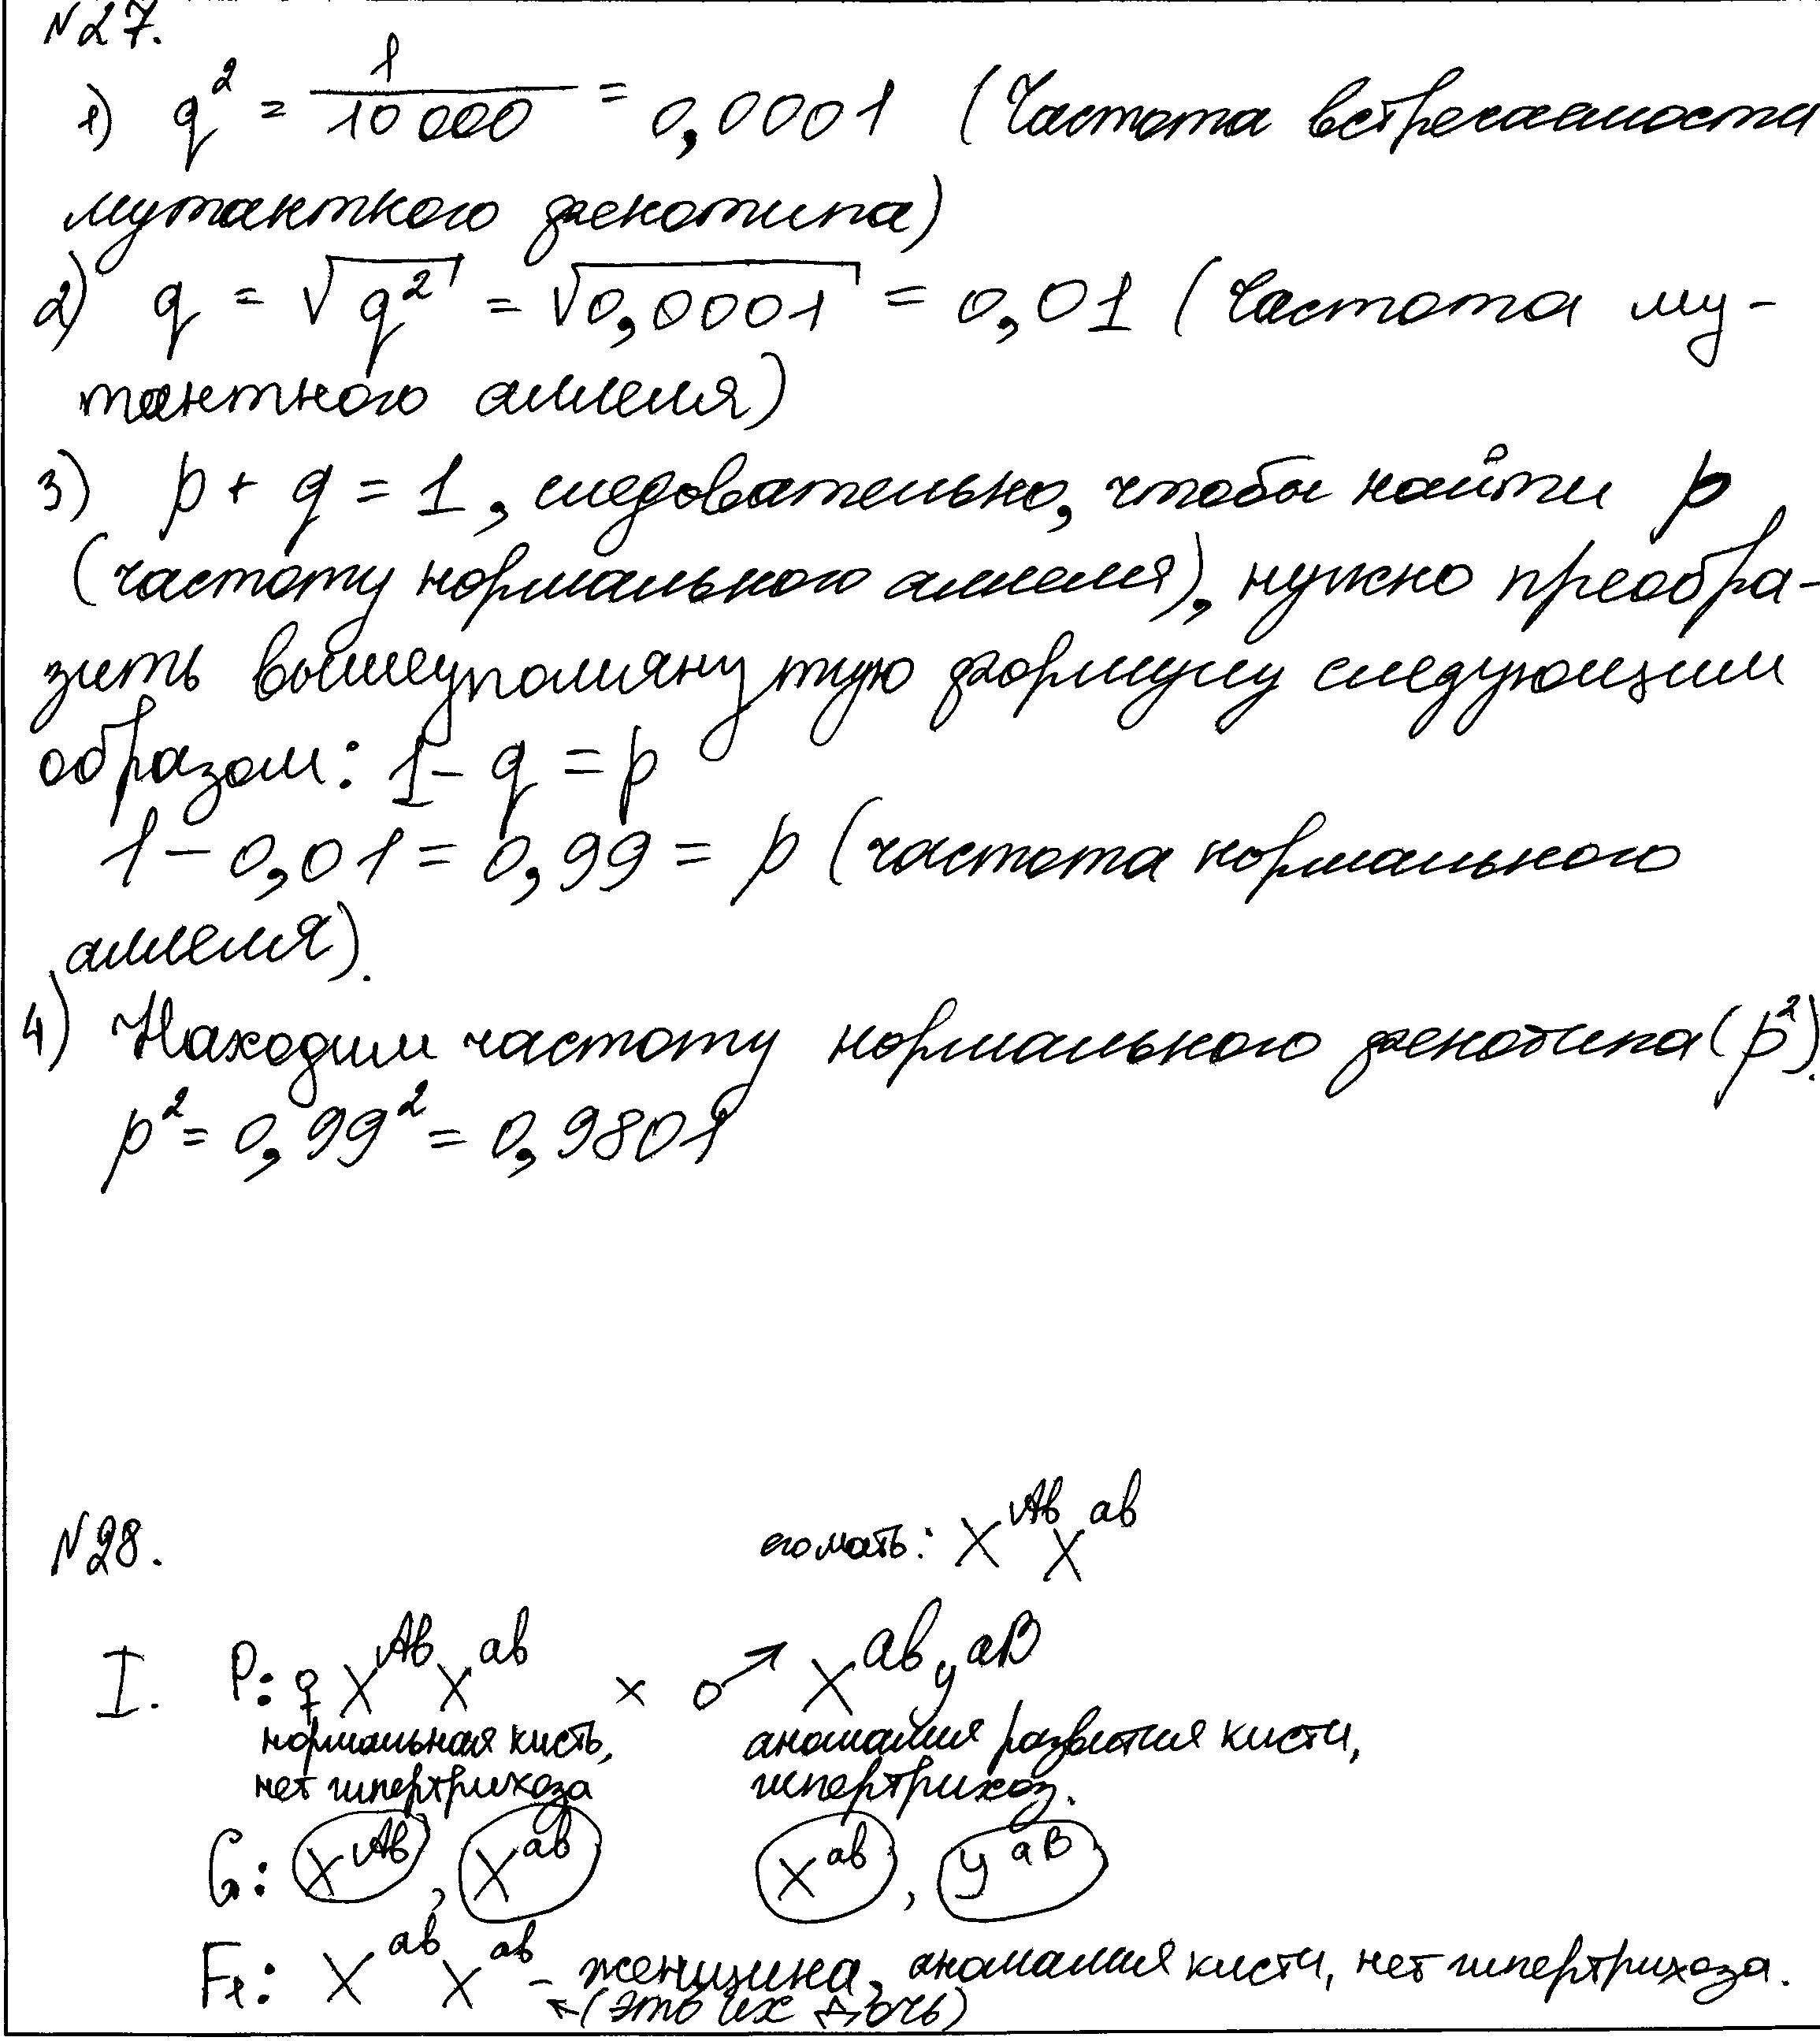 №27.
1) q² = 1/10 000 = 0,0001 (Частота встречаемости
мутантного фенотипа)
2) q = √q² = √0,0001 = 0,01 (Частота му-
тантного аллеля)
3) p + q = 1, следовательно, чтобы найти p
(частоту нормального аллеля), нужно преобра-
зить вышеупомянутую формулу следующим
образом: 1 - q = p
1 - 0,01 = 0,99 = p (частота нормального
аллеля).
4) Находим частоту нормального фенотипа (p²).
p² = 0,99² = 0,9801
№28.
его мать: X^Ab X^ab
I. P: ♀ X^Ab X^ab × ♂ X^ab y^aB
нормальная кисть, аномалия развития кисти,
нет гипертрихоза гипертрихоз.
G: X^Ab, X^ab X^ab, y^aB
F1: X^ab X^ab - женщина, аномалия кисти, нет гипертрихоза.
←(это их дочь)